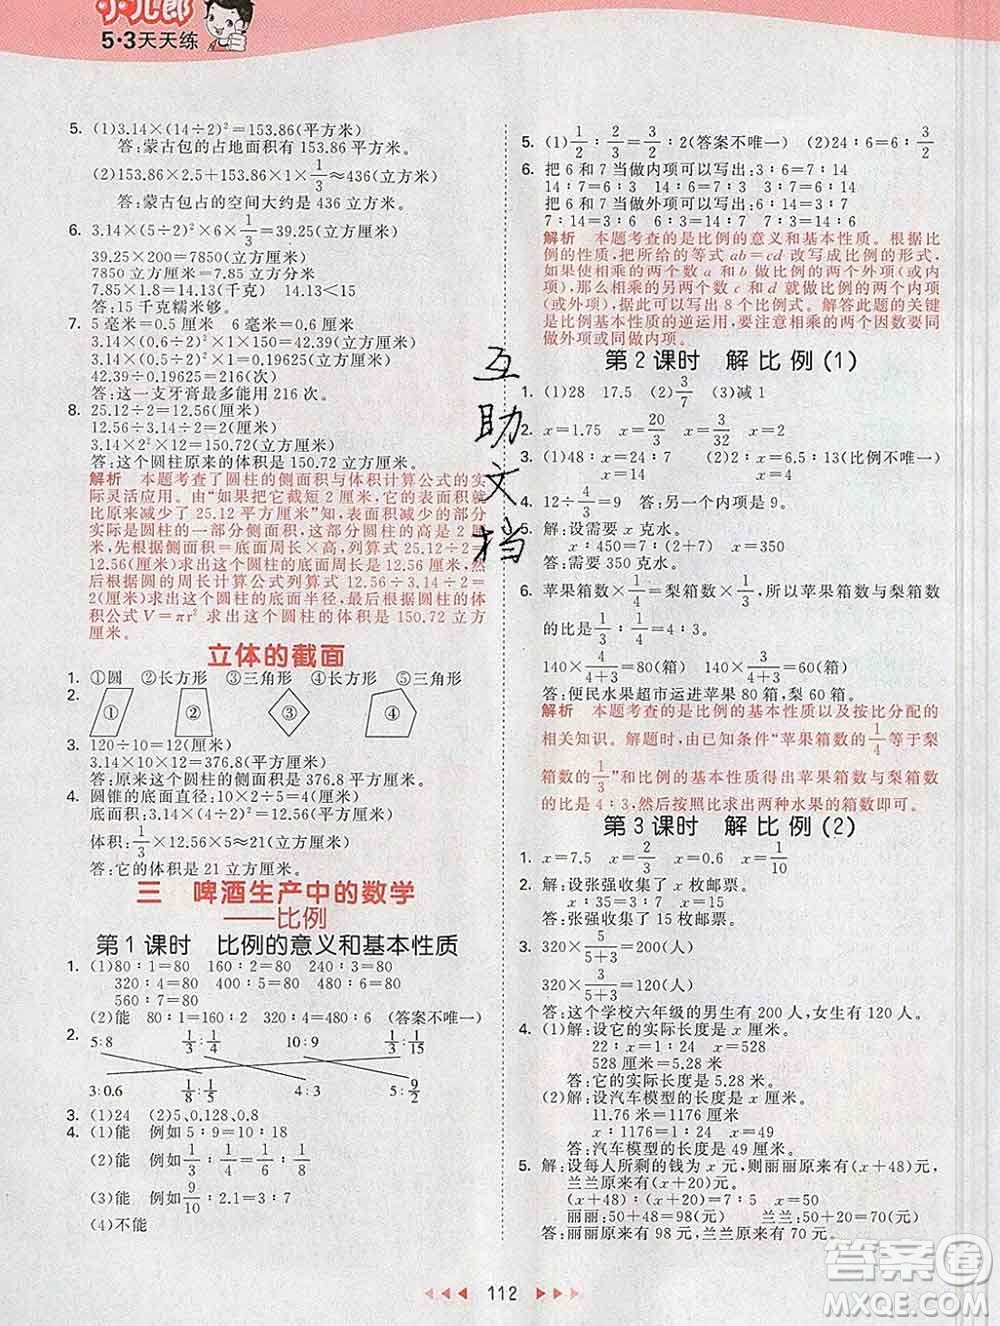 小儿郎
5·3天天练
5. (1)3.14×(14÷2)²=153.86(平方米)
答:蒙古包的占地面积有 153.86 平方米。
(2)153.86×2.5+153.86×1×1/3≈436(立方米)
答:蒙古包占的空间大约是 436 立方米。
6. 3.14×(5÷2)²×6×1/3=39.25(立方米)
39.25×200=7850(立方厘米)
7850 立方厘米=7.85 立方分米
7.85×1.8=14.13(千克) 14.13<15
答:15 千克糯米够。
7. 5 毫米=0.5 厘米 6 毫米=0.6 厘米
3.14×(0.6÷2)²×150=42.39(立方厘米)
3.14×(0.5÷2)²×1=0.19625(立方厘米)
42.39÷0.19625=216(次)
答:这一支牙膏最多能用 216 次。
8. 25.12÷2=12.56(厘米)
12.56÷3.14÷2=2(厘米)
3.14×2²×12=150.72(立方厘米)
答:这个圆柱原来的体积是 150.72 立方厘米。
解析 本题考查了圆柱的侧面积与体积计算公式的实
际灵活应用。由“如果把它截短 2 厘米,它的表面积就
比原来减少了 25.12 平方厘米”知,表面积减少的部分
实际是圆柱的一部分侧面积,这部分圆柱的高是 2 厘
米,先根据侧面积=底面周长×高,列算式 25.12÷2=
12.56(厘米)求出这个圆柱的底面周长是 12.56 厘米,然
后根据圆的周长计算公式列算式 12.56÷3.14÷2=
2(厘米)求出这个圆柱的底面半径,最后根据圆柱的体
积公式 V=πr²h 求出这个圆柱原来的体积是 150.72 立
方厘米。
立体的截面
1. ①圆 ②长方形 ③三角形 ④长方形 ⑤三角形
2. ① ② ③ ④
3. 120÷10=12(厘米)
3.14×10×12=376.8(平方厘米)
答:原来这个圆柱的侧面积是 376.8 平方厘米。
4. 圆锥的底面直径:10×2÷4=5(厘米)
底面积:3.14×(4÷2)²=12.56(平方厘米)
体积:1/3×12.56×5≈21(立方厘米)
答:它的体积是 21 立方厘米。
三 啤酒生产中的数学
——比例
第 1 课时 比例的意义和基本性质
1. (1)80∶1=80 160∶2=80 240∶3=80
320∶4=80 400∶5=80 480∶6=80
560∶7=80
(2)能 80∶1=160∶2 320∶4=480∶6 (答案不唯一)
2. 5∶8 1/3∶1/9 10∶9 1/3∶1/15
3∶0.6 1/6∶1/8 4∶3 1/5∶2/9
3. (1)24 (2)5、0.128、0.8
4. (1)能 例如 5∶9=10∶18
(2)能 例如 1/6∶1/4=1/9∶1/6
(3)能 例如 9/10∶2.1=3∶7
(4)不能
5. (1)1/2∶3/2=2/3∶2(答案不唯一) (2)24∶6=6∶3/2
6. 把 6 和 7 当做内项可以写出:3∶6=7∶14
14∶7=6∶3 14∶6=7∶3 3∶7=6∶14
把 6 和 7 当做外项可以写出:
7∶14=3∶6 6∶3=14∶7 7∶3=14∶6 6∶14=3∶7
解析 本题考查的是比例的意义和基本性质。根据比
例的性质,把所给的等式 ab=cd 改写成比例的形式,
如果使相乘的两个数 a 和 b 做比例的两个外项(或内
项),那么相乘的另两个数 c 和 d 就做比例的两个内项
(或外项),据此可以写出 8 个比例式。解答此题的关键
是比例基本性质的逆运用,要注意相乘的两个因数要同
做外项或同做内项。
第 2 课时 解 比 例 (1)
1. (1)28 17.5 (2)3/7 (3)减 1
2. x=1.75 x=20/3 x=32/9 x=2
3. (1)48∶x=24∶7 (2)x∶4=7∶6.5(比例不唯一)
x=14
4. 12÷4/3=9 答:另一个内项是 9。
5. 解:设需要 x 克水。
x∶450=7∶(2+7) x=350
答:需要 350 克水。
6. 苹果箱数×1/4=梨箱数×1/3,所以苹果箱数与梨箱数
的比是 1/3∶1/4=4∶3
140×4/(4+3)=80(箱) 140×3/(4+3)=60(箱)
答:便民水果超市运进苹果 80 箱,梨 60 箱。
解析 本题考查的是比例的基本性质以及按比分配的
相关知识。解题时,由已知条件“苹果箱数的1/4等于梨
箱数的1/3”和比例的基本性质得出苹果箱数与梨箱数
的比是 4∶3,然后按照比求出两种水果的箱数即可。
第 3 课时 解 比 例 (2)
1. x=7.5 x=2/3 x=0.6 x=1/10
2. 解:设张强收集了 x 枚邮票。
x∶35=3∶7 x=15
答:张强收集了 15 枚邮票。
3. 320×5/(5+3)=200(人)
320×3/(5+3)=120(人)
答:这个学校六年级的男生有 200 人,女生有 120 人。
4. (1)解:设它的实际长度是 x 厘米。
22∶x=1∶24 x=528
528 厘米=5.28 米
答:它的实际长度是 5.28 米。
(2)解:设汽车模型的长度是 x 厘米。
11.76 米=1176 厘米
x∶1176=1∶24 x=49
答:汽车模型的长度是 49 厘米。
5. 解:设每人所剩的钱为 x 元,则丽丽原来有(x+48)元,
兰兰原来有(x+20)元。
(x+48)∶(x+20)=7∶5 x=50
丽丽:50+48=98(元) 兰兰:50+20=70(元)
答:丽丽原来有 98 元,兰兰原来有 70 元。
互助文档
112
答案圈
MXQE.COM